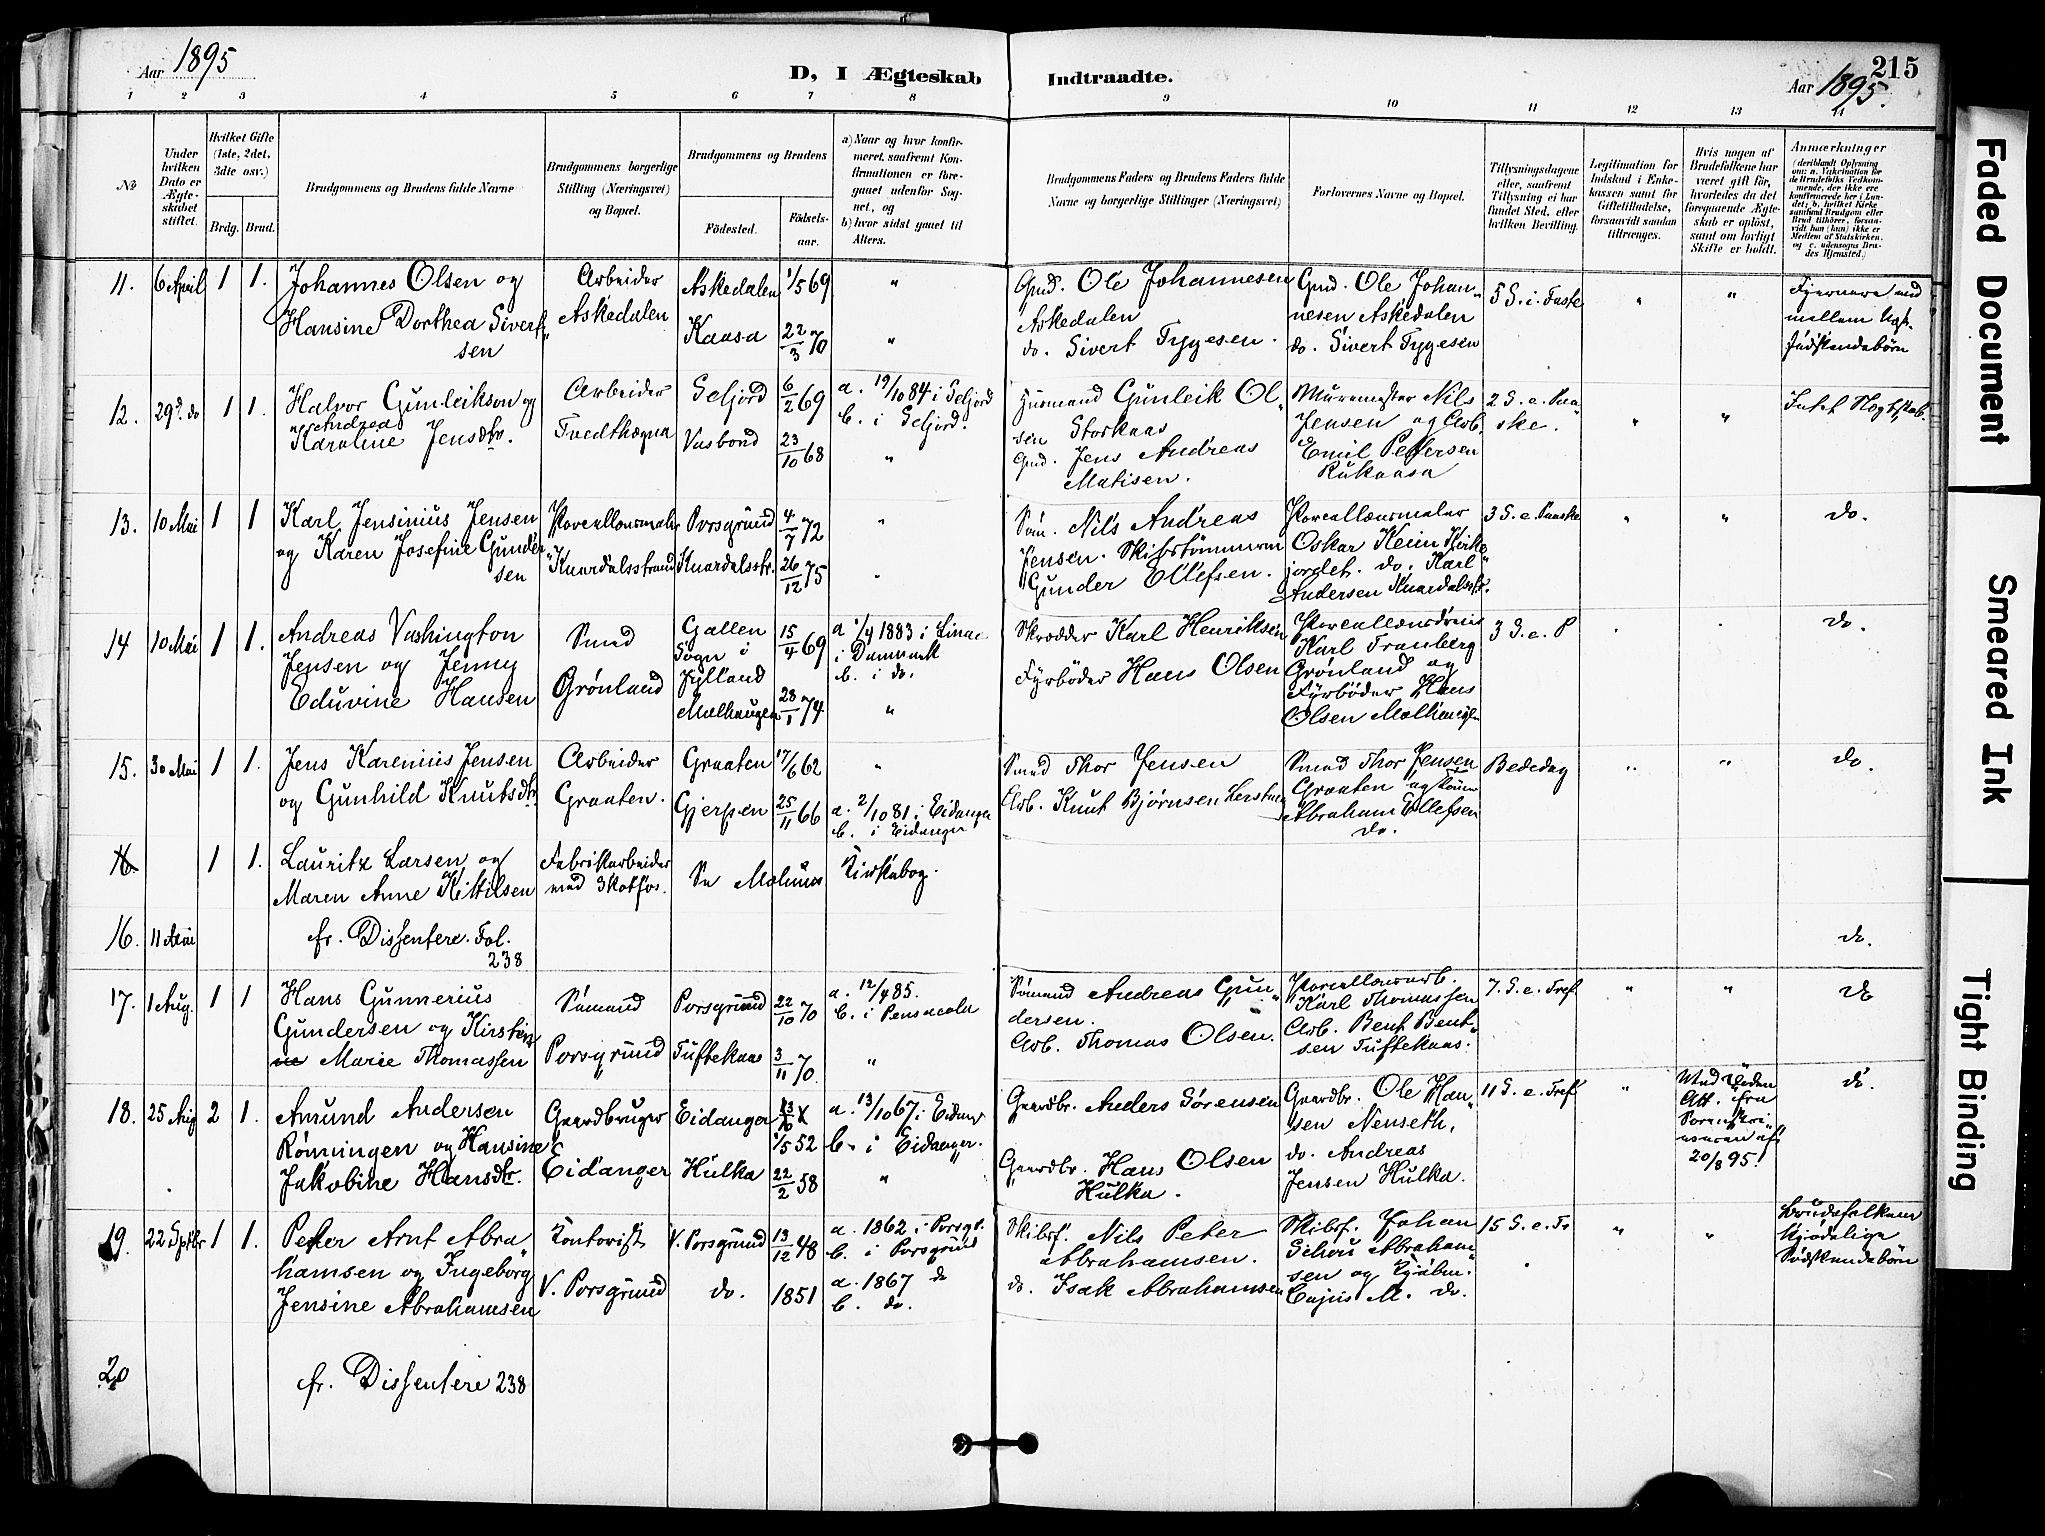 Aar 1895
D, I Ægteskab Indtraadte.
215
Aar 1895.
1 2 3 4 5 6 7 8 9 10 11 12 13 14
No
Under hvilken Dato er Ægteskabet stiftet.
Hvilket Gifte (1ste, 2det, 3die osv.)
Brdg. Brud.
Brudgommens og Brudens fulde Navne
Brudgommens borgerlige Stilling (Næringsvei) og Bopæl.
Brudgommens og Brudens
Fødested.
Fødselsaar.
a) Naar og hvor konfirmeret, saafremt Konfirmationen er foregaaet udenfor Sognet, og
b) hvor sidst gaaet til Alters.
Brudgommens Faders og Brudens Faders fulde Navne og borgerlige Stillinger (Næringsvei)
Forlovernes Navne og Bopæl.
Tillysningsdagene eller, saafremt Tillysning ei har fundet Sted, efter hvilken Bevilling.
Legitimation for Indskud i Enkekassen samt for Giftetilladelse, forsaavidt saadan tiltrænges.
Hvis nogen af Brudefolkene har været gift før, hvorledes da det foregaaende Ægteskab er opløst, samt om lovligt Skifte er holdt.
Anmærkninger
(deriblandt Oplysning om: a. Vakcination for de Brudefolks Vedkommende, der ikke ere konfirmerede her i Landet; b. hvilket Kirkesamfund Brudgom eller Brud tilhører, forsaavidt han (hun) ikke er Medlem af Statskirken, og c. udensogns Brudes Hjemsted.)
11. 6 April 1 1. Johannes Olsen og
Hansine Dorthea Sivertsen
Arbeider
Askedalen
Askedalen 1/5 69 "
Kaasa 22/3 70 "
Gmd. Ole Johannesen
Askedalen
do. Sivert Tygesen.
Gmd. Ole Johannesen Askedalen
do. Sivert Tygesen
5 S. i. Faste " "
12. 29d. do 1 1. Halvor Gunleikson og
Andrea
Karoline Jensdtr.
Arbeider
Tvedthægna
Seljord 6/2 69 a. 19/10 84 i Seljord
b. i Seljord.
Vasbond 23/10 68 "
Husmand Gunleik Olsen Storkaas
Gmd. Jens Andreas
Matisen.
Muremester Nils
Jensen og Arb.
Emil Pettersen
Rukaasa
2 S. e. Paaske. " "
Intet Slegtskab.
13. 10 Mai 1 1 Karl Jensinius Jensen
og Karen Josefine Gundersen
Porcellænsmaler
Knardalsstrand
Porsgrund 4/7 72 "
Knardalsstr. 26/12 75 "
Søm. Nils Andreas
Jensen. Skibstømmerm
Gunder Ellefsen.
Porcellænsmaler
Oskar Keim
do. Karl
Andersen Knardalsstr.
3 S. e. Paaske " "
do.
14 10 Mai 1 1. Andreas Vashington
Jensen og Jenny
Eduvine Hansen
Smed
Grønland
Gallen
Sogn i
Jylland 15/4 69
a 1/4 1883 i
i Danmark
b. i do.
Mælhaugen 28/1 74 "
Skrædder Karl Henriksen
Fyrbøder Hans Olsen
Karl Tranberg
Grønland og
Fyrbøder Hans
Olsen
3 S. e. P
do.
15. 30 Mai 1 1. Jens Karenius Jensen
og Gunhild Knutsdtr.
Arbeider
Graaten.
Graaten 17/6 62 "
Gjerpen 25/11 66 a. 2/10 81 i Eidanger
b. i Eidanger
Smed Thor Jensen
Arb. Knut Bjørnsen
Smed Thor Jensen
Graaten og
Abraham Ellefsen
do.
Bededag " "
do.
16 1 1. Lauritz Larsen og
Maren Anne Kittilsen
Fabrikarbeider
med Skotfos.
Se Molums Kirkebog.
16. 11 Mai fr. Dissentere. Fol.
238
do.
17. 1 Aug. 1 1 Hans Gunnerius
Gundersen og Kirstine
Marie Thomassen
Sømand
Porsgrund
Porsgrund 22/10 70 a. 12/4 85.
b. i Pensacola
Tuftekaas 3/11 70 "
Sømand Andreas Gundersen.
Arb. Thomas Olsen.
Porcellænsarb.
Karl Thomassen
Arb. Bent Bentsen Tuftekaas.
7. S. e. Tref. " "
do
18. 25 Aug 2 1. Amund Andersen
Rønningen og Hansine
Jakobine Hansdtr.
Gaardbruger
Eidanger
Eidanger 1/5 52 a. 13/10 67 i Eidang
b. i Eidanger.
Hulka 22/2 58 "
Gaardbr. Anders Sørensen
Gaardbr. Hans Olsen
Hulka.
Gaardbr. Ole Hansen Nenseth,
do. Andreas
Jensen Hulka.
11 S. e. Tref "
Att. fra
Sorenskriveren af
20/8 95.
do.
19. 22 Septbr 1 1. Peter Arnt Abrahamsen og Ingeborg
Jensine Abrahamsen
Kontorist
V. Porsgrund
V. Porsgrund 13/12 48 a. 1862 i Porsgr.
b. i Porsgrund
do. 1851 a. 1867 do
b. do.
Skibsf. Nils Peter
Abrahamsen.
do. Isak Abrahamsen
Skibsf. Johan
Schou Abrahamsen og
Cajus M. do.
15 S. e. Tr " "
Brudefolkene
Kjødelige
Sødskendebørn
20 fr. Dissentere 238
Faded Document
Smeared Ink
Tight Binding